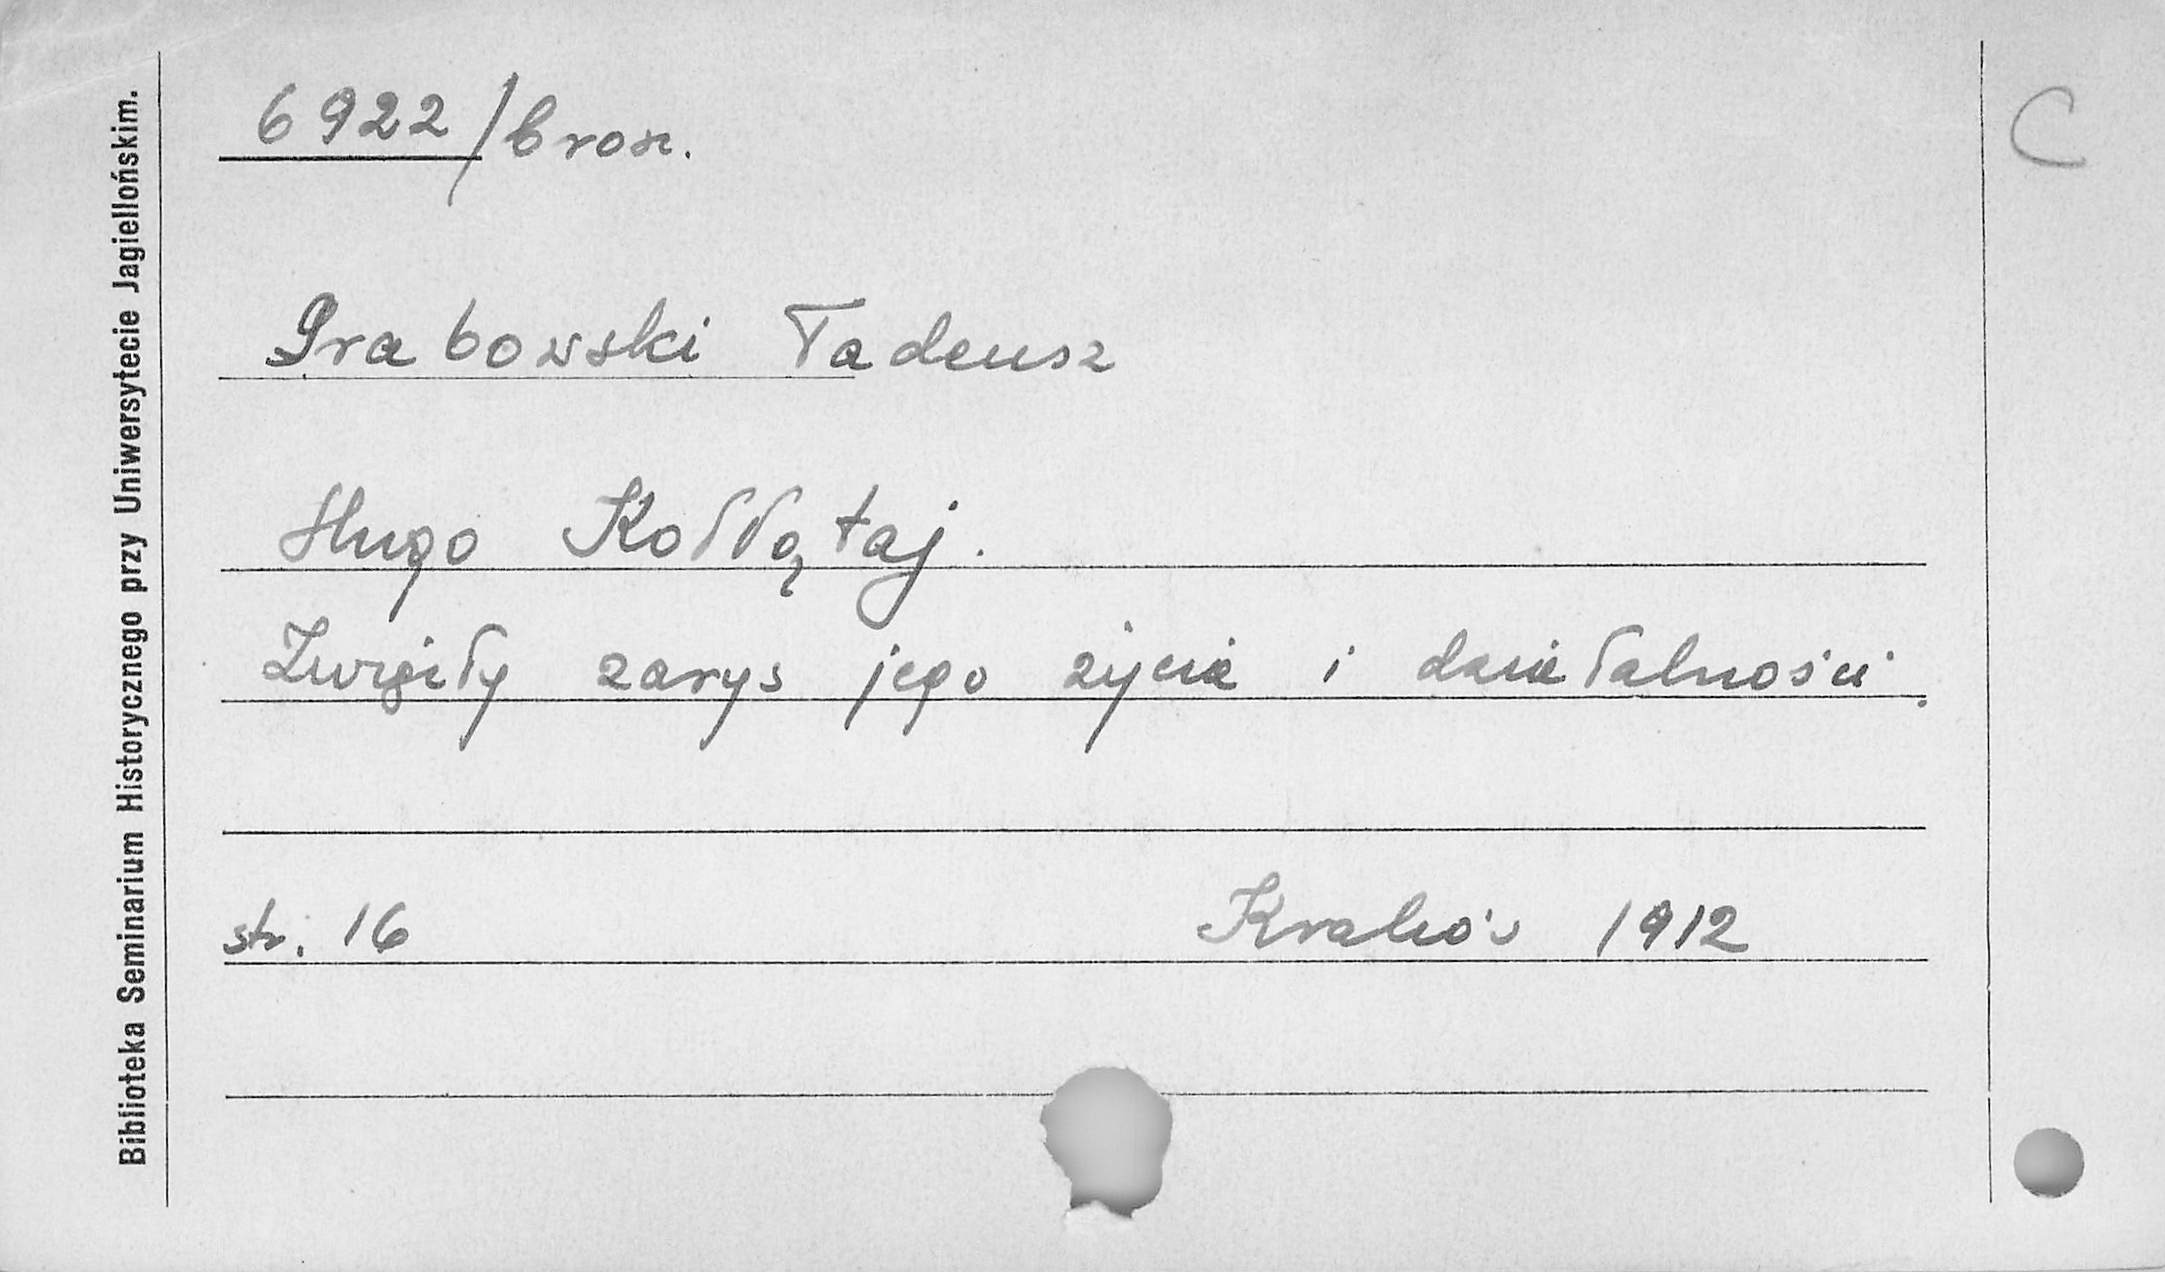 6922/brosz.
C
Grabowski Tadeusz
Hugo Kołłątaj.
Zwięzły zarys jego życia i działalności.
str. 16 Kraków 1912
Biblioteka Seminarium Historycznego przy Uniwersytecie Jagiellońskim.